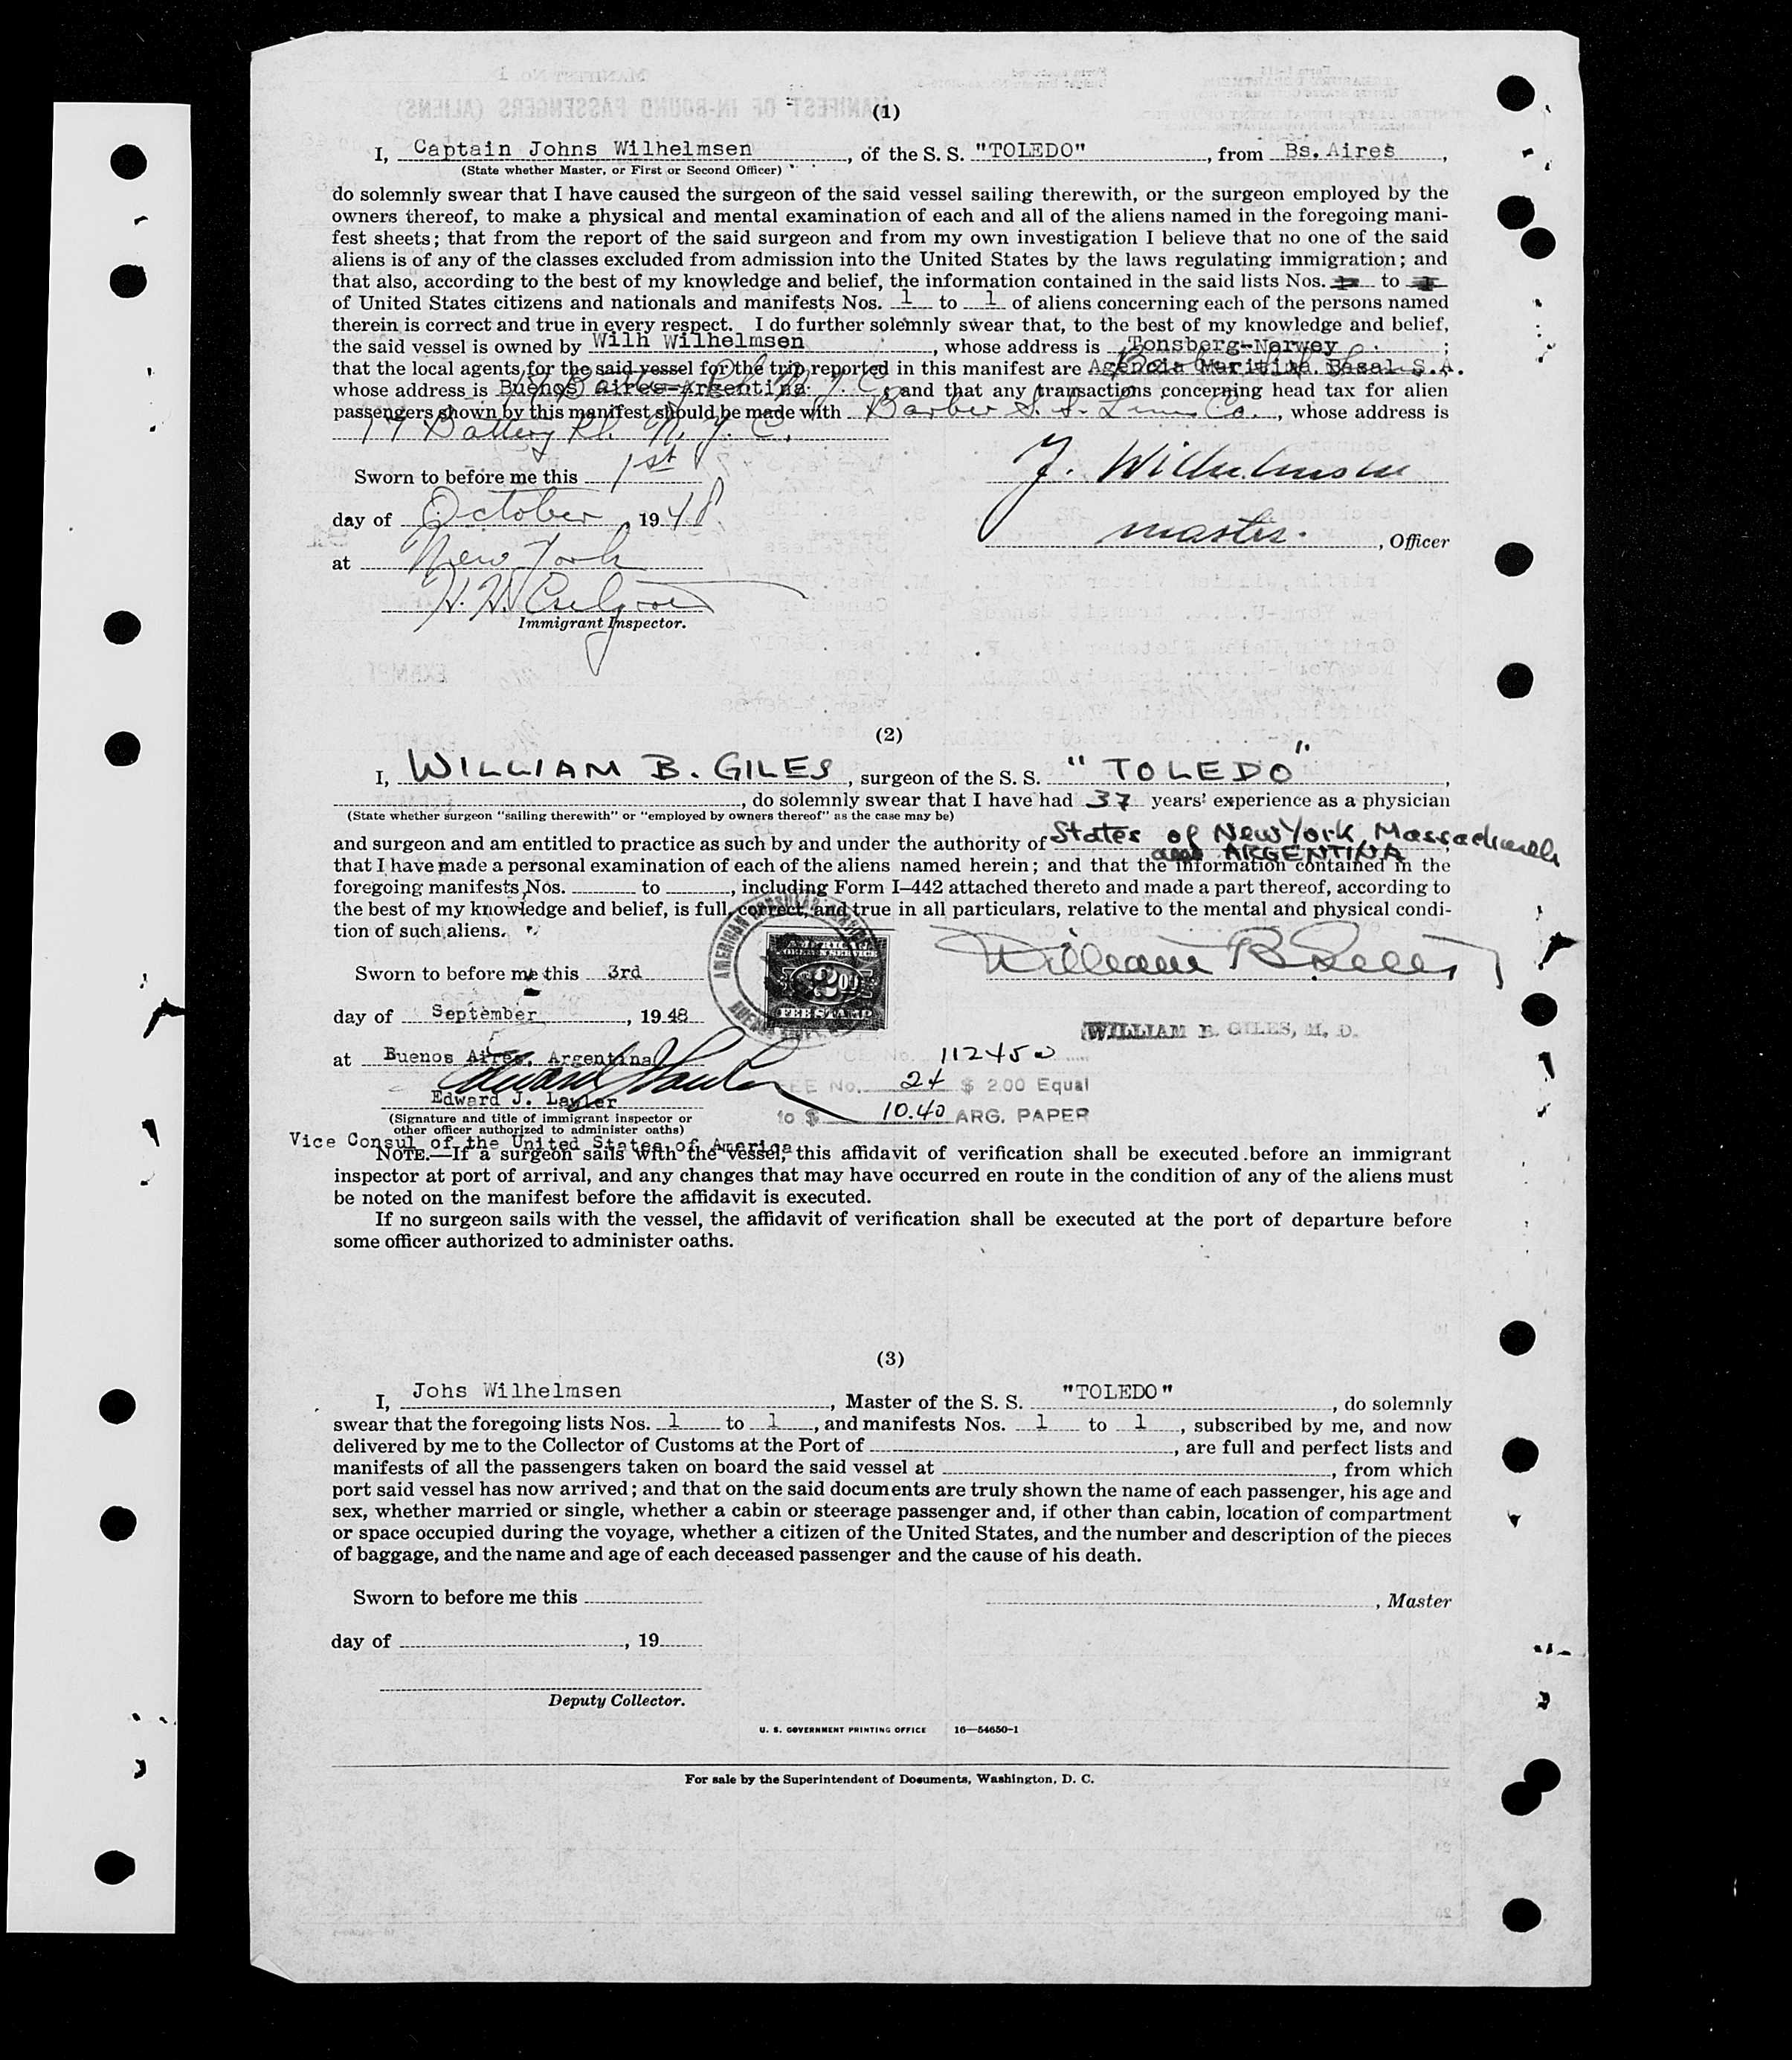 (1)
I, Captain Johns Wilhelmsen, of the S. S. "TOLEDO", from Bs. Aires,
(State whether Master, or First or Second Officer)
do solemnly swear that I have caused the surgeon of the said vessel sailing therewith, or the surgeon employed by the
owners thereof, to make a physical and mental examination of each and all of the aliens named in the foregoing mani-
fest sheets; that from the report of the said surgeon and from my own investigation I believe that no one of the said
aliens is of any of the classes excluded from admission into the United States by the laws regulating immigration; and
that also, according to the best of my knowledge and belief, the information contained in the said lists Nos. to
of United States citizens and nationals and manifests Nos. 1 to 1 of aliens concerning each of the persons named
therein is correct and true in every respect. I do further solemnly swear that, to the best of my knowledge and belief,
the said vessel is owned by Wilh Wilhelmsen, whose address is Tonsberg-Norwey;
that the local agents for the said vessel for the trip reported in this manifest are Agencia Maritima Basal S.A.
whose address is Buenos aires-Argentina; and that any transactions concerning head tax for alien
passengers shown by this manifest should be made with Barber S. S. Line Co., whose address is
17 Battery Pl. N. Y. C.
Sworn to before me this 1st
J. Wilhelmsen
day of October, 1948
master., Officer
at New York
Immigrant Inspector.
(2)
I, WILLIAM B. GILES, surgeon of the S. S. "TOLEDO",
, do solemnly swear that I have had 37 years' experience as a physician
(State whether surgeon "sailing therewith" or "employed by owners thereof" as the case may be)
and surgeon and am entitled to practice as such by and under the authority of States of New York, Massachusetts
and ARGENTINA
that I have made a personal examination of each of the aliens named herein; and that the information contained in the
foregoing manifests Nos. to , including Form I-442 attached thereto and made a part thereof, according to
the best of my knowledge and belief, is full, correct, and true in all particulars, relative to the mental and physical condi-
tion of such aliens.
AMERICAN CONSULAR SERVICE
AMERICAN
FOREIGN SERVICE
$2.00
FEE STAMP
Sworn to before me this 3rd
William B Giles
day of September, 1948
WILLIAM B. GILES, M. D.
at Buenos Aires, Argentina
No. 112450
Edward J. Lawler
FEE No. 24 $ 2.00 Equal
to $ 10.40 ARG. PAPER
(Signature and title of immigrant inspector or
other officer authorized to administer oaths)
Vice Consul of the United States of America
NOTE.—If a surgeon sails with the vessel, this affidavit of verification shall be executed before an immigrant
inspector at port of arrival, and any changes that may have occurred en route in the condition of any of the aliens must
be noted on the manifest before the affidavit is executed.
If no surgeon sails with the vessel, the affidavit of verification shall be executed at the port of departure before
some officer authorized to administer oaths.
(3)
I, Johs Wilhelmsen, Master of the S. S. "TOLEDO", do solemnly
swear that the foregoing lists Nos. 1 to 1, and manifests Nos. 1 to 1, subscribed by me, and now
delivered by me to the Collector of Customs at the Port of , are full and perfect lists and
manifests of all the passengers taken on board the said vessel at , from which
port said vessel has now arrived; and that on the said documents are truly shown the name of each passenger, his age and
sex, whether married or single, whether a cabin or steerage passenger and, if other than cabin, location of compartment
or space occupied during the voyage, whether a citizen of the United States, and the number and description of the pieces
of baggage, and the name and age of each deceased passenger and the cause of his death.
Sworn to before me this
, Master
day of , 19
Deputy Collector.
U. S. GOVERNMENT PRINTING OFFICE 16—54650-1
For sale by the Superintendent of Documents, Washington, D. C.